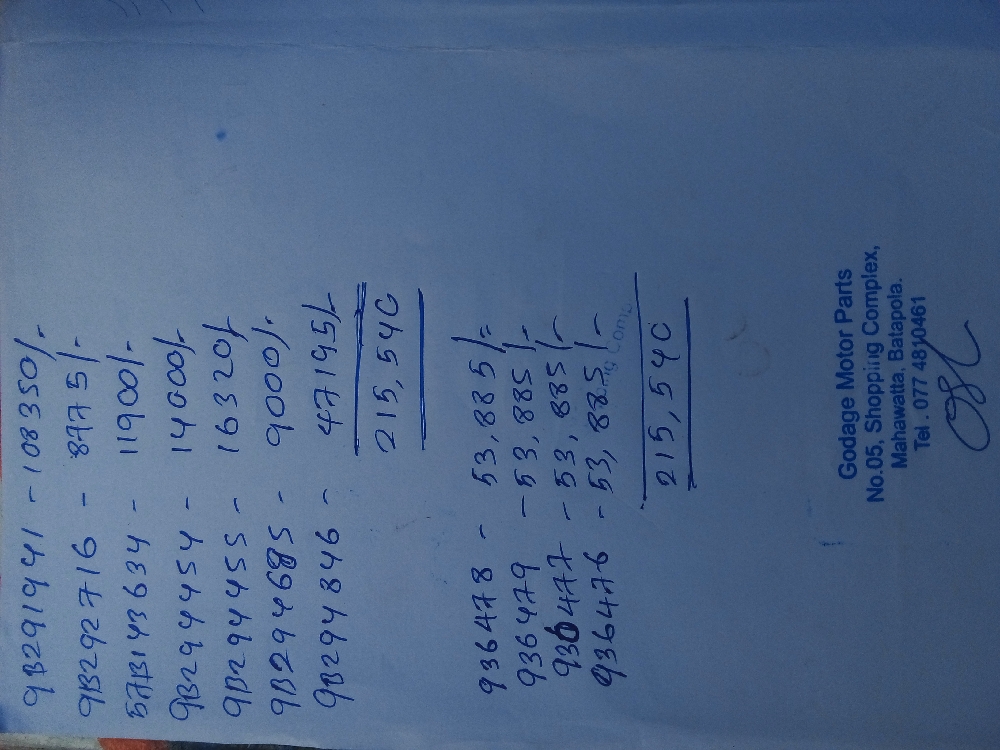 9B291941 - 108350/-
9B292716 - 8775/-
57B143634 - 11900/-
9B294454 - 14000/-
9B294455 - 16320/-
9B294685 - 9000/-
9B294846 - 47195/-
215,540
936478 - 53,885/=
936479 - 53,885/-
936477 - 53,885/-
936476 - 53,885/-
215,540
Godage Motor Parts
No.05, Shopping Complex,
Mahawatta, Batapola.
Tel . 077 4810461